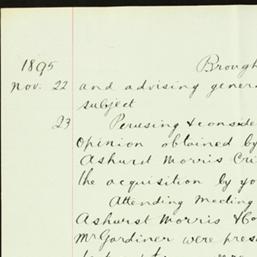 1895 Brough
Nov. 22 and advising gener
subject
23 Perusing & conside
opinion obtained by
Ashurst Morris Cri
the acquisition by yo
Attending Meeting
Ashurst Morris & Co
Mr Gardiner were pres